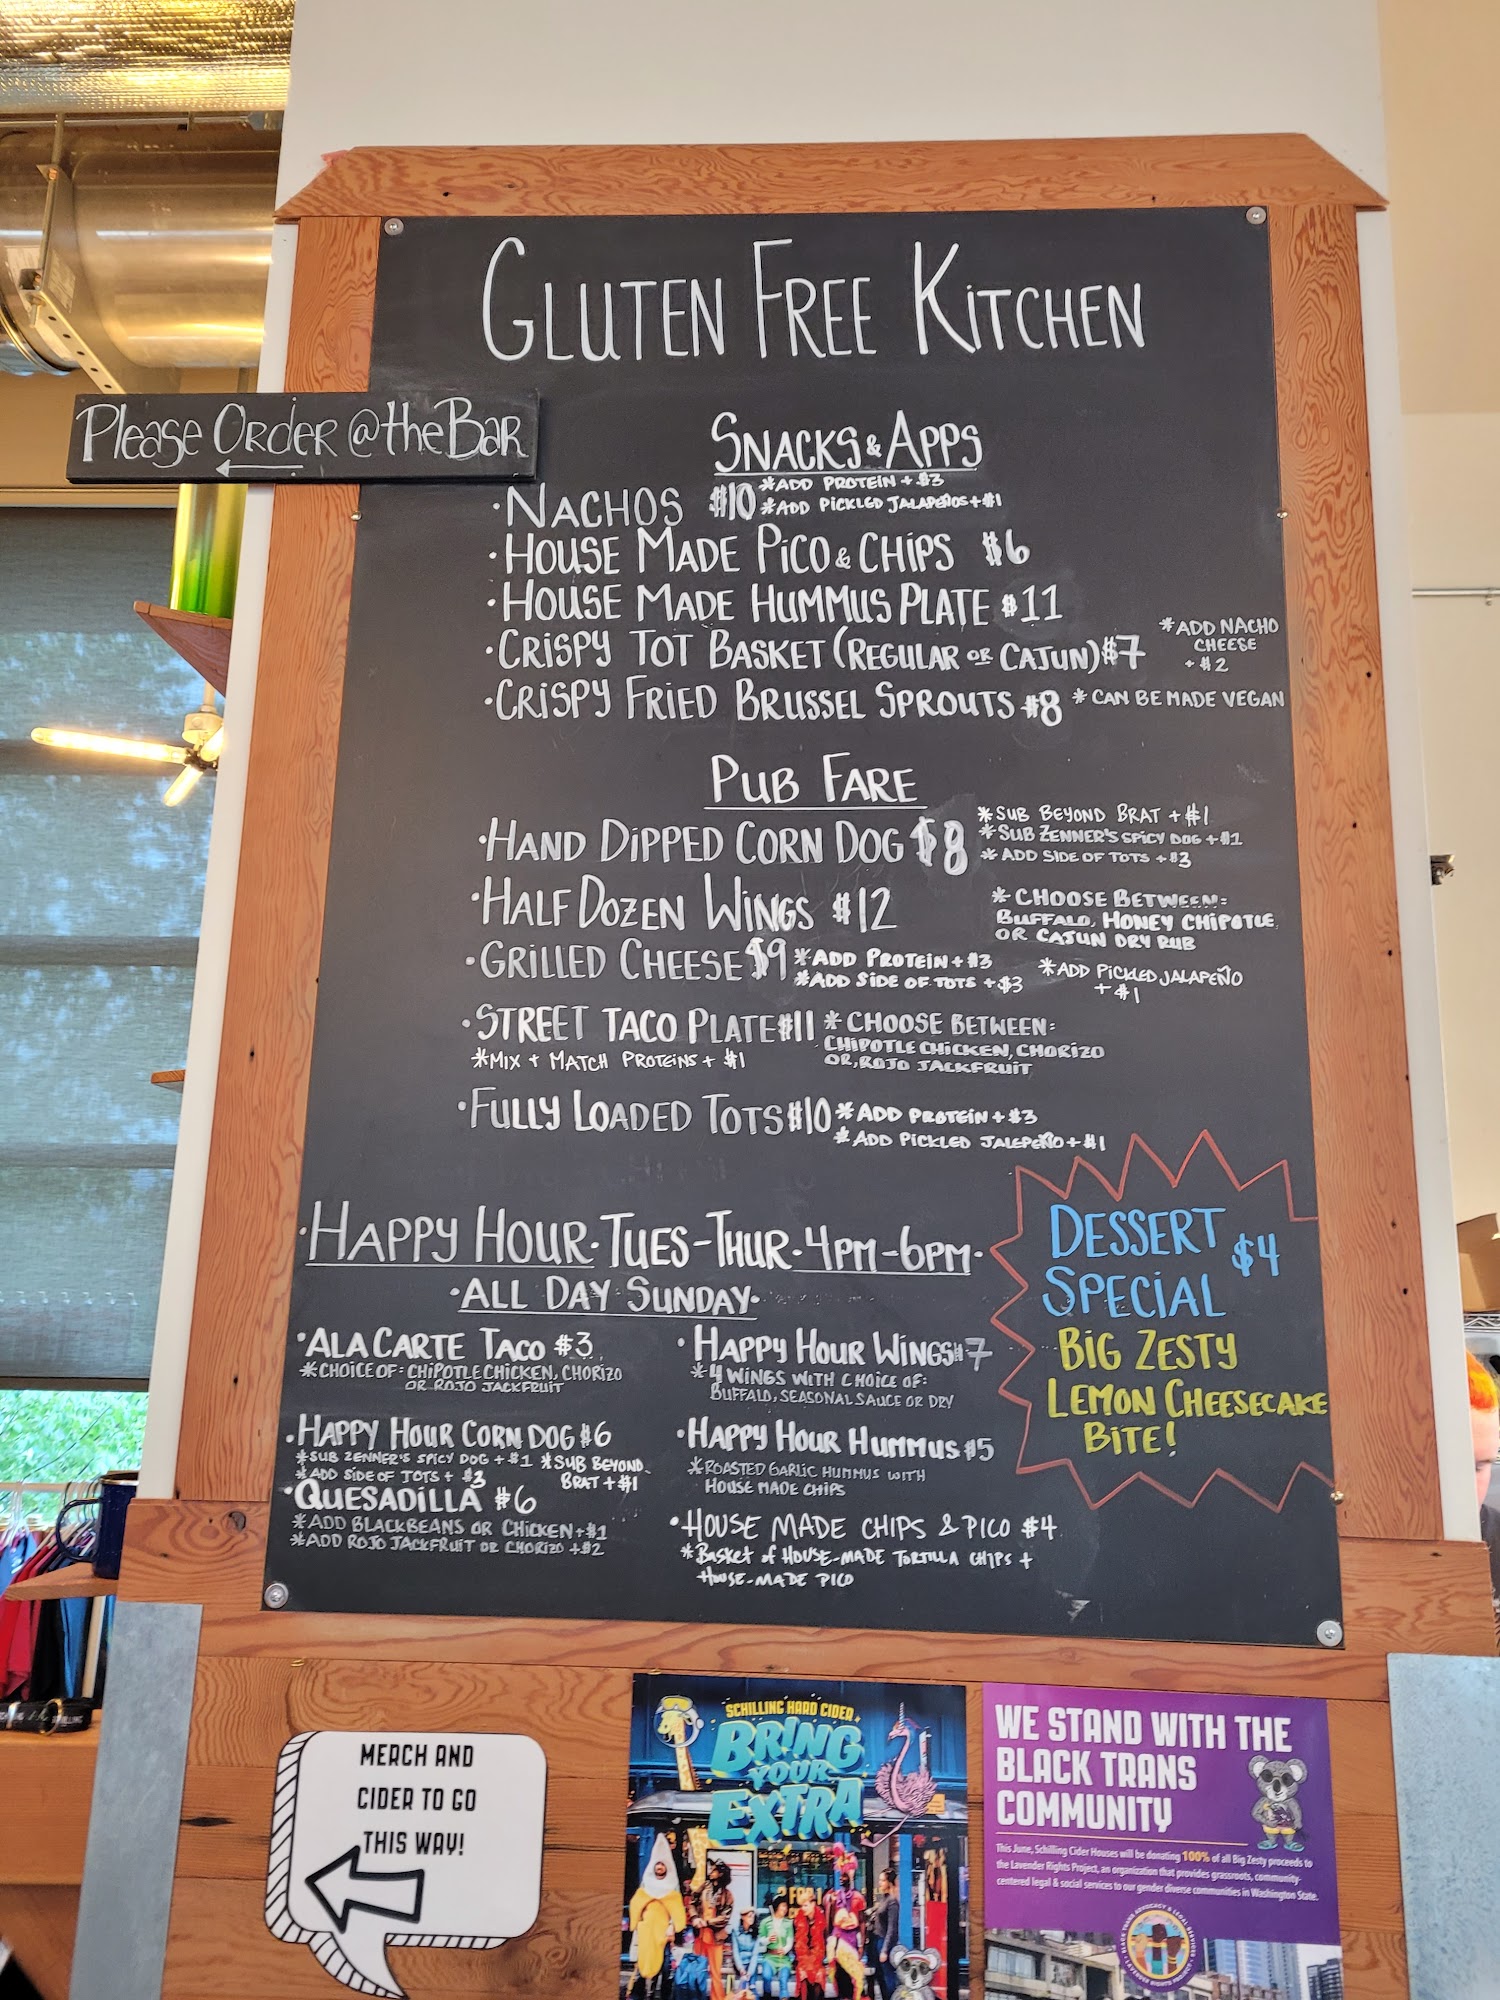 GLUTEN FREE KITCHEN
Please Order @ the Bar
SNACKS & APPS
·NACHOS $10 *ADD PROTEIN + $3
*ADD PICKLED JALAPEÑOS + $1
·HOUSE MADE PICO & CHIPS $6
·HOUSE MADE HUMMUS PLATE $11
·CRISPY TOT BASKET (REGULAR OR CAJUN) $7 *ADD NACHO
CHEESE
+ $2
·CRISPY FRIED BRUSSEL SPROUTS $8 *CAN BE MADE VEGAN
PUB FARE
·HAND DIPPED CORN DOG $8 *SUB BEYOND BRAT + $1
*SUB ZENNER'S SPICY DOG + $1
*ADD SIDE OF TOTS + $3
·HALF DOZEN WINGS $12 *CHOOSE BETWEEN:
BUFFALO, HONEY CHIPOTLE,
OR CAJUN DRY RUB
·GRILLED CHEESE $9 *ADD PROTEIN + $3
*ADD SIDE OF TOTS + $3
*ADD PICKLED JALAPEÑO
+ $1
·STREET TACO PLATE $11 *CHOOSE BETWEEN:
CHIPOTLE CHICKEN, CHORIZO
OR, ROJO JACKFRUIT
*MIX + MATCH PROTEINS + $1
·FULLY LOADED TOTS $10 *ADD PROTEIN + $3
*ADD PICKLED JALEPEÑO + $1
·HAPPY HOUR·TUES-THUR·4PM-6PM·
·ALL DAY SUNDAY·
·ALA CARTE TACO $3
*CHOICE OF: CHIPOTLE CHICKEN, CHORIZO
OR ROJO JACKFRUIT
·HAPPY HOUR CORN DOG $6
*SUB ZENNER'S SPICY DOG + $1 *SUB BEYOND
BRAT + $1
*ADD SIDE OF TOTS + $3
·QUESADILLA $6
*ADD BLACKBEANS OR CHICKEN + $1
*ADD ROJO JACKFRUIT OR CHORIZO + $2
·HAPPY HOUR WINGS $7
*4 WINGS WITH CHOICE OF:
BUFFALO, SEASONAL SAUCE OR DRY
·HAPPY HOUR HUMMUS $5
*ROASTED GARLIC HUMMUS WITH
HOUSE MADE CHIPS
·HOUSE MADE CHIPS & PICO $4
*BASKET OF HOUSE-MADE TORTILLA CHIPS +
HOUSE-MADE PICO
DESSERT
SPECIAL $4
BIG ZESTY
LEMON CHEESECAKE
BITE!
MERCH AND
CIDER TO GO
THIS WAY!
SCHILLING HARD CIDER
BRING
YOUR
EXTRA
WE STAND WITH THE
BLACK TRANS
COMMUNITY
This June, Schilling Cider Houses will be donating 100% of all Big Zesty proceeds to
the Lavender Rights Project, an organization that provides grassroots, community-
centered legal & social services to our gender diverse communities in Washington State.